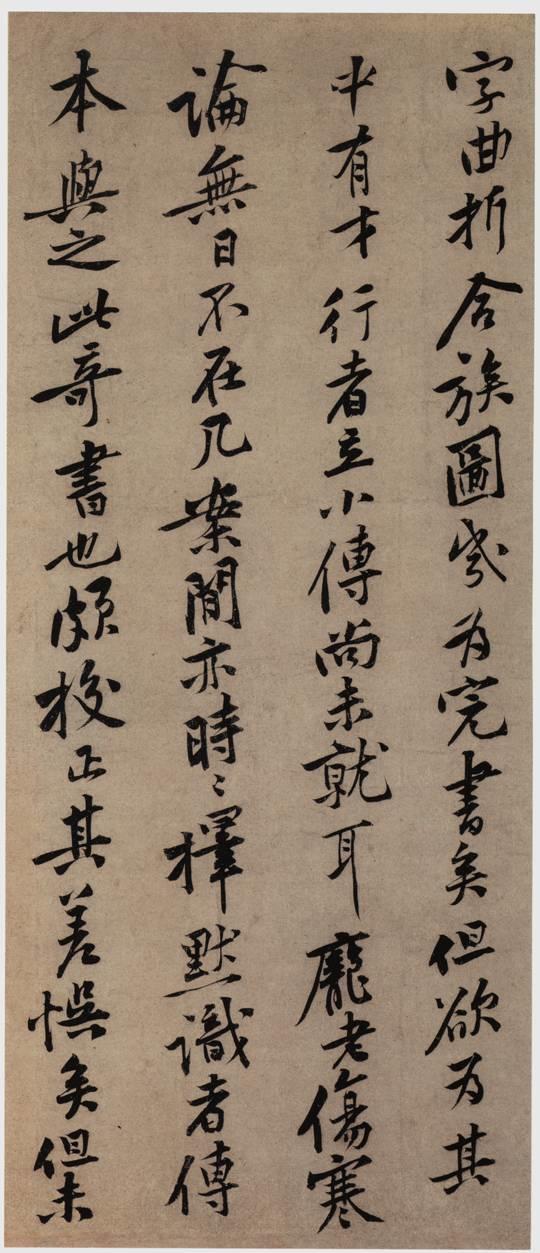 字曲折合族圖岁为完書矣但欲为其
中有才行者立小傳尚未就耳龐老傷寒
論無日不在几案閒亦時〻擇默識者傳
本與之此奇書也頗校正其差悮矣但未